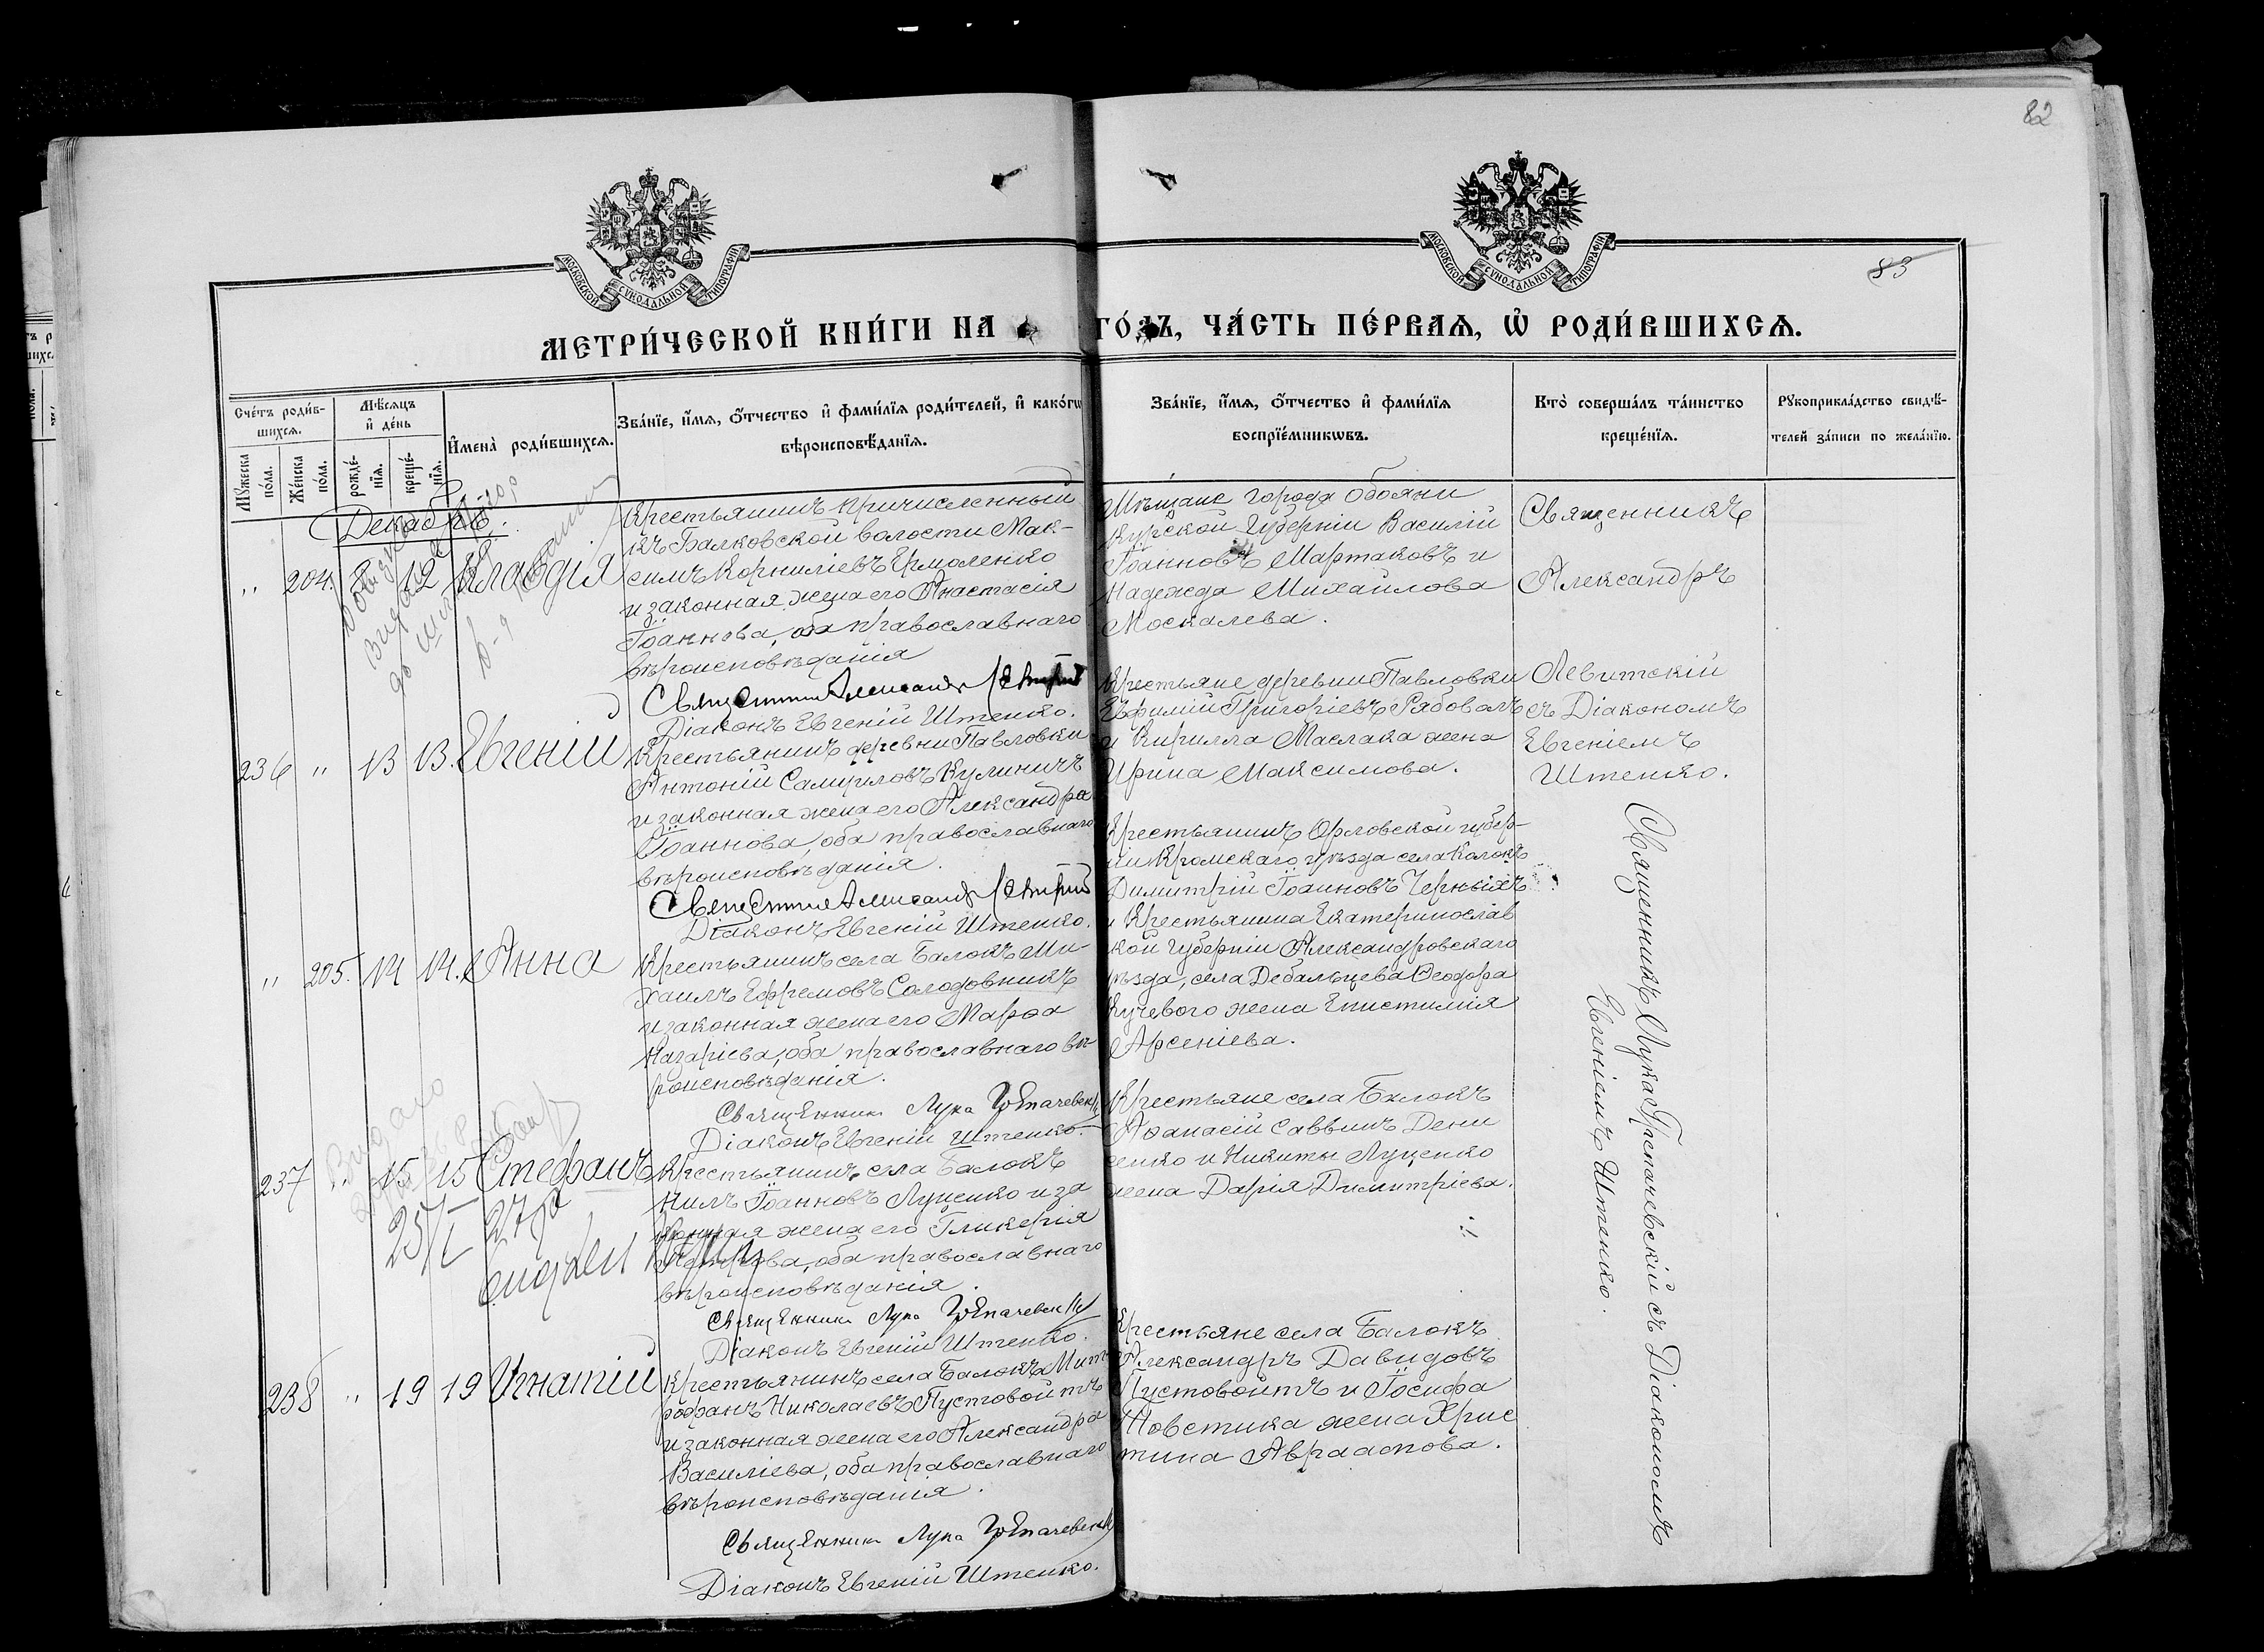 82
83
МОСКОВСКОЙ СѴНОДАЛЬНОЙ ТИПОГРАФІИ
МОСКОВСКОЙ СѴНОДАЛЬНОЙ ТИПОГРАФІИ
МЕТРИ́ЧЕСКОЙ КНИ́ГИ НА ГО́ДЪ, ЧА́СТЬ ПЕ́РВАѦ, Ѽ РОДИ́ВШИХСѦ.
Сче́тъ роди́в-
шихсѧ.
Мꙋ́жеска
по́ла.
Же́нска
по́ла.
Мѣ́сѧцъ
и҆ де́нь
рожде́-
нїѧ.
креще́-
нїѧ.
И҆мена̀ роди́вшихсѧ.
Зва́нїе, и҆́мѧ, ѻ҆́тчество и҆ фами́лїѧ роди́телей, и҆ како́гѡ
вѣроисповѣ́данїѧ.
Зва́нїе, и҆́мѧ, ѻ҆́тчество и҆ фами́лїѧ
воспрїе́мникѡвъ.
Кто̀ соверша́лъ та́инство
креще́нїѧ.
Рꙋкоприкла́дство свидѣ́-
телей за́писи по жела́нїю.
Декабрь.
" 204. 8 12 Клавдія
Крестьянинъ причисленный
къ Балковской волости Мак-
симъ Корниліевъ Ермоленко
и законная жена его Анастасія
Іоаннова, оба православнаго
вѣроисповѣданія
Діаконъ Евгеній Штенко.
Мѣщане города Обояни
Курской Губерніи Василій
Іоанновъ Мартаковъ и
Надежда Михайлова
Москалева.
Священникъ
Александръ
Левитскій
съ Діакономъ
Евгеніемъ
Штенко.
236 " 13 13. Евгеній
Крестьянинъ деревни Павловки
Антоній Самуиловъ Кулиничъ
и законная жена его Александра
Іоаннова, оба православнаго
вѣроисповѣданія.
Діаконъ Евгеній Штенко.
Крестьяне деревни Павловки
Евфимій Григоріевъ Рябоволъ
и Кирилла Маслака жена
Ирина Максимова.
" 205. 14 14. Анна
Крестьянинъ села Балокъ Ми-
хаилъ Ефремовъ Солодовникъ
и законная жена его Марѳа
Назаріева, оба православнаго вѣ-
роисповѣданія.
Священникъ Лука Грепачевскій
Діаконъ Евгеній Штенко.
Крестьянинъ Орловской губер-
ніи Кромскаго уѣзда села Колокъ
Димитрій Іоанновъ Черныхъ
и Крестьянина Екатеринослав
кой Губерніи Александровскаго
уѣзда, села Дебальцева Ѳеодора
Кучевого жена Епистимія
Арсеніева.
Священникъ Лука Грепачевскій съ Діакономъ
Евгеніемъ Штенко.
237 " 15 15 Стефанъ
25/I 27 р
Крестьянинъ села Балокъ
Нилъ Іоанновъ Луценко и за
конная жена его Гликерія
Петрова, оба православнаго
вѣроисповѣданія.
Священникъ Лука Грепачевскій
Діаконъ Евгеній Штенко.
Крестьяне села Балокъ
Аѳанасій Саввинъ Дени
сенко и Никиты Луценко
жена Дарія Димитріева.
238 " 19 19 Игнатій
Крестьянинъ села Балокъ Мит
рофанъ Николаевъ Пустовойтъ
и законная жена его Александра
Василіева, оба православнаго
вѣроисповѣданія.
Священникъ Лука Грепачевскій
Діаконъ Евгеній Штенко.
Крестьяне села Балокъ
Александръ Давидовъ
Пустовойтъ и Іосифа
Товстика жена Хрис
тина Авраамова.